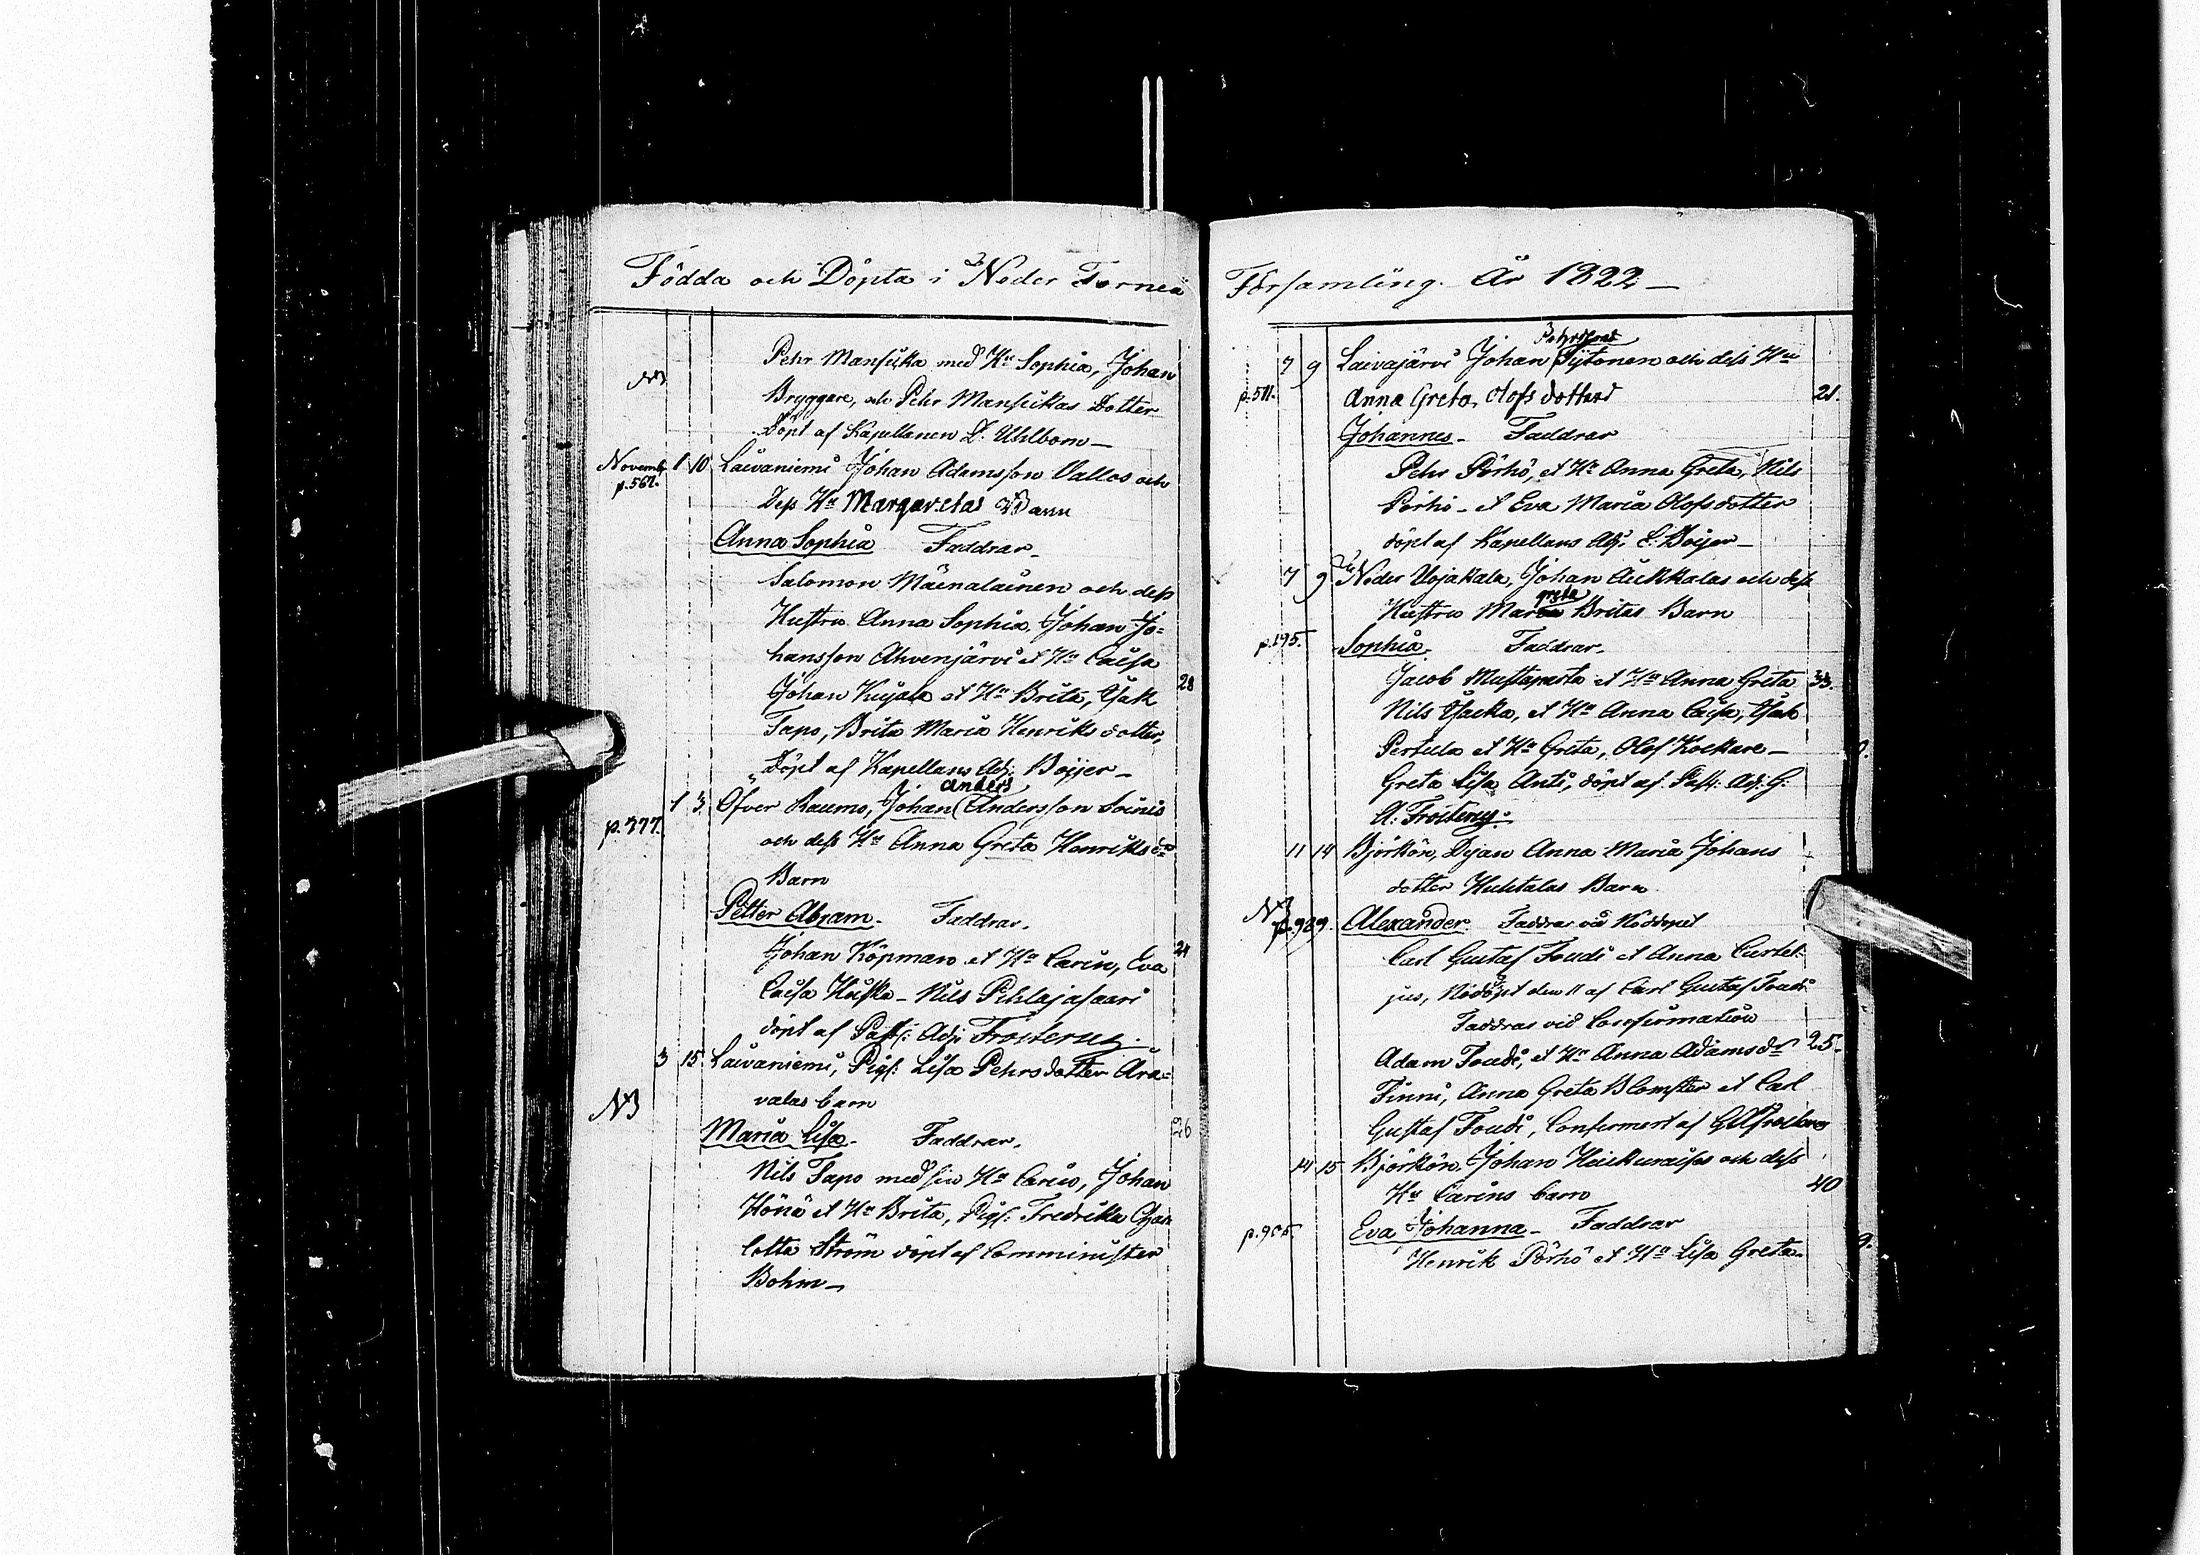 Födda och Döpta i Neder Torneå
Pehr Mansikka med Hu Sophia, Johan
NB
Bryggare, och Pehr Mansikkas Dotter
Döpt af Kapellanen D. Uhlbom
Novemb. 1 10 Laivaniemi Johan Adamsson Vallos och
p.567. Dess Hu Margaretas Barn
Anna Sophia Faddrar
Salomon Mäenalainen och dess
Hustru Anna Sophia, Johan Jo=
hansson Ahvenjärvi et Hu Caisa
Johan Kujala et Hu Brita, Isak 28
Sapo, Brita Maria Henriks dotter,
Döpt af Kapellans Adj. Boijer
Anders
1 3 Öfver Raumo, Johan (Andersson Soinis
p.377. och dess Hu Anna Greta Henriks dr
Barn
Petter Abram. Faddrar.
Johan Köpman et Hu Carin, Eva 24
Caisa Huikka - Nils Pehlajasaari
döpt af Past: Adj. Frosterus.
3 15 Laivaniemi, Pig: Lisa Pehrsdotter Ara=
NB valas barn
Maria Lisa. Faddrar. 26
Nils Sapo med sin Hu Carin, Johan
Hönä et Hu Brita, Pig: Fredrika Char
lotta Ström döpt af Comminister
Bohm

Församling År 1822
7 9 Laivajärvi Johan Sytonen och dess Hu
p.511. Anna Greta Olofs dotters 21.
Johannes - Faddrar
Pehr Pörhö, et Hu Anna Greta, Nils
Pörhö - et Eva Maria Olofsdotter
döpt af Kapellans Adj. Boijer
7 9 Neder Vojakala, Johan Aukkalas och dess
greta
Hustru Maria Britas Barn
p.195. Sophia. Faddrar.
Jacob Mustaparta et Hu Anna Greta 33.
Nils Isacka, et Hu Anna Caisa, Isak
Pertula et Hu Greta, Olof Kockare
Greta Lisa Anti, döpt af Past: Adj: G.
A. Frosterus.
11 14 Björkön, Pijan Anna Maria Johans
dotter Huhtalas Barn
NB
p.929. Alexander. Faddrar vid Nöddopet
Carl Gustaf Toudi et Anna Curtel=
jus, Nöddöpt den 11 af Carl Gustaf Toudi
Faddrar vid Confirmation
Adam Toudi, et Hu Anna Adams dr 25.
Finni, Anna Greta Blomster et Carl
Gustaf Toudi, Confirmert af GAFrosterus
14 15 Björkön Johan Heikuraises och dess
Hu Carins barn 40
p.905. Eva Johanna - Faddrar
Henrik Pörhö et Hu Lisa Greta